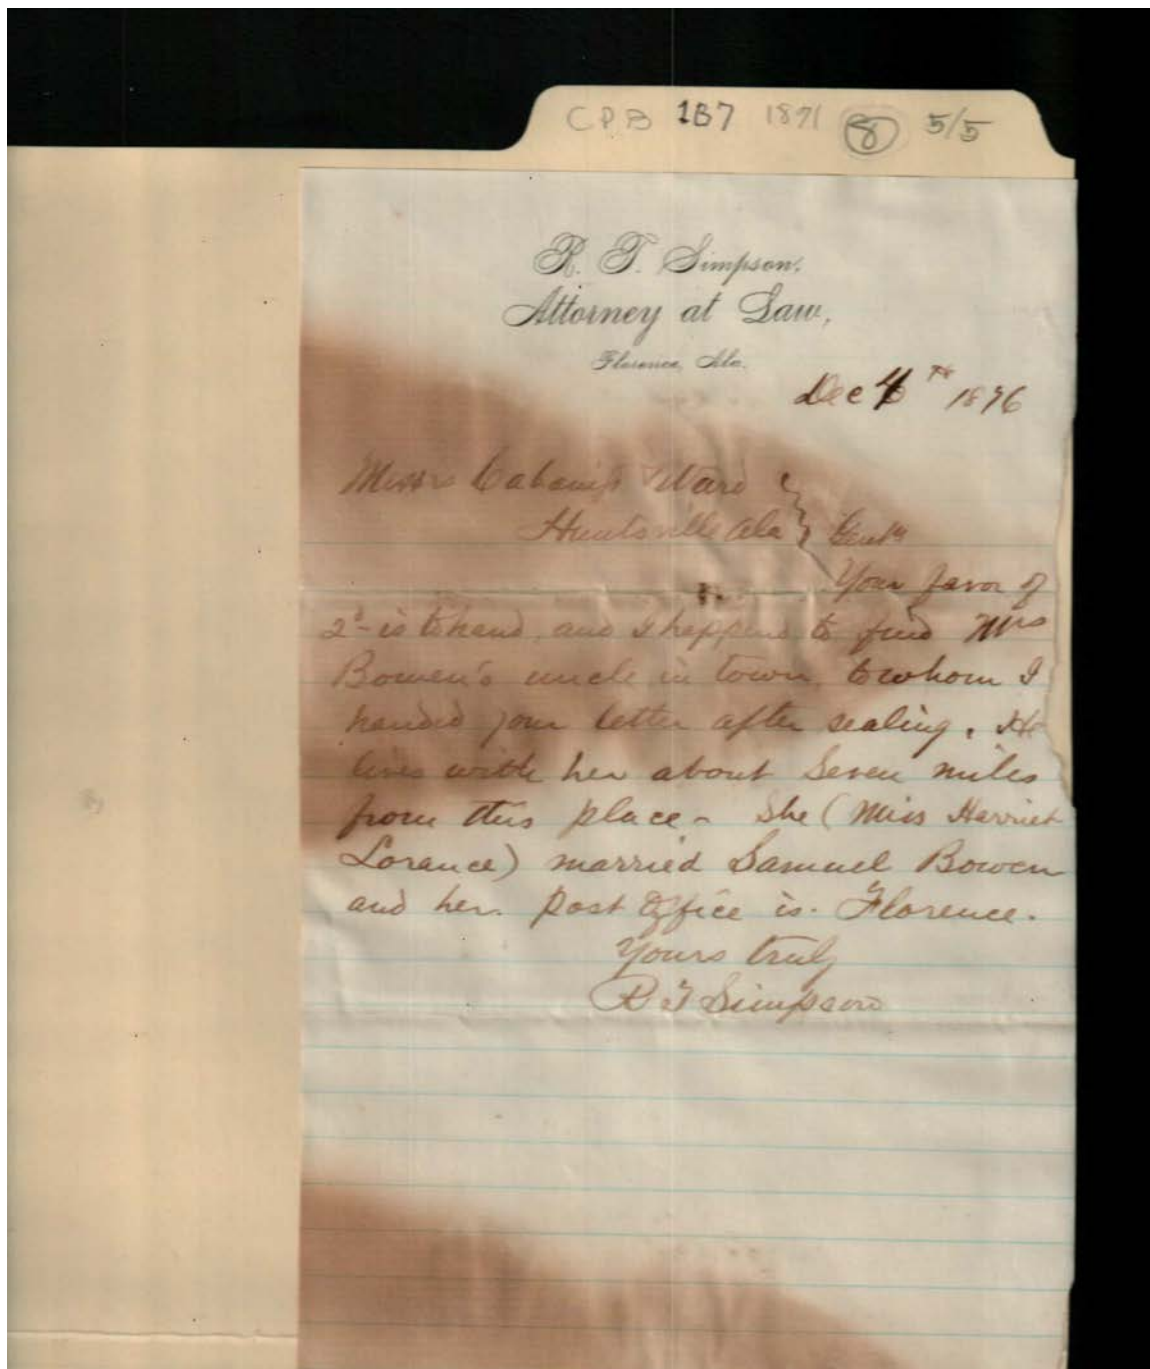 CPB 1B7 1871 8 5/5
R. T. Simpson,
Attorney at Law,
Florence, Ala.
Dec 4th 1876
Messrs Cabaniss & Ward
Huntsville Ala Gentn
Your favor of
2d- is to hand, and I happened to find Mrs
Bowen's uncle in town, to whom I
handed your letter after sealing. He
lives with her about Seven miles
from this place - She (Miss Harriet
Lorance) married Samuel Bowen
and her Post Office is Florence.
Yours truly
R T Simpson